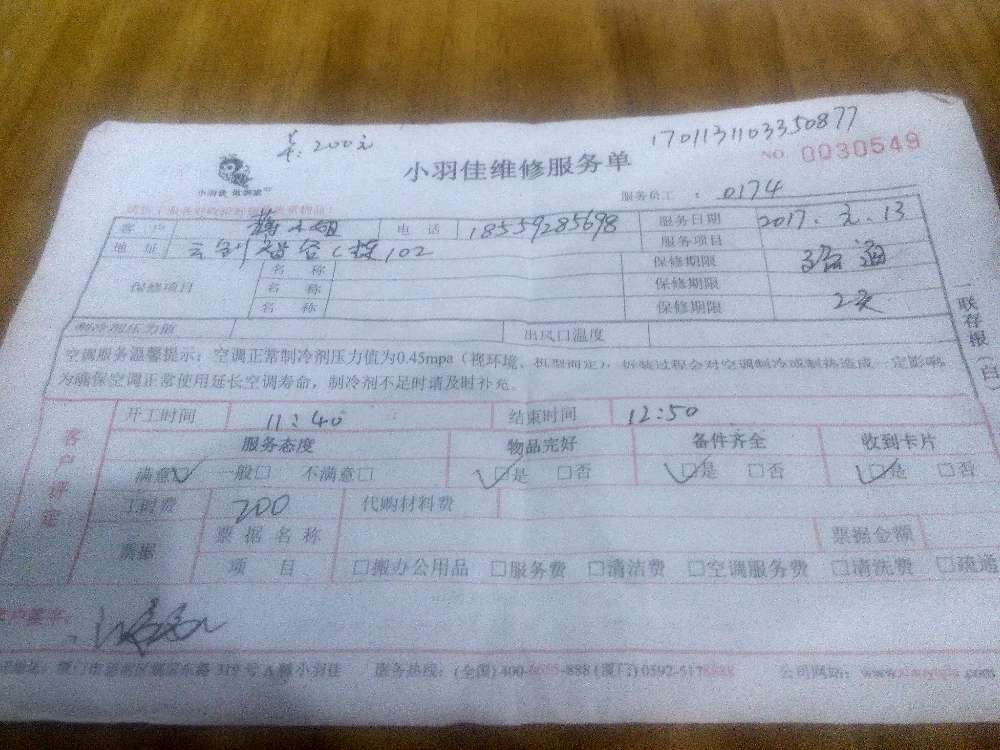 200元
17011311033350877
小羽佳维修服务单
NO. 0030549
服务员工： 0174
客 户 小姐 电 话 18559285698 服务日期 2017.元.13
地 址 C栋102 服务项目
保修项目 名 称 保修期限 疏通
名 称 保修期限
名 称 保修期限 2天
制冷剂压力值 出风口温度
空调服务温馨提示：空调正常制冷剂压力值为0.45mpa（视环境、机型而定），拆装过程会对空调制冷或制热造成一定影响，
为确保空调正常使用延长空调寿命，制冷剂不足时请及时补充。
一联存根（白）
客户评定
开工时间 11:40 结束时间 12:50
服务态度 物品完好 备件齐全 收到卡片
满意☑ 一般□ 不满意□ ☑是 □否 ☑是 □否 ☑是 □否
工时费 200 代购材料费
票据 票据名称 票据金额
项 目 □搬办公用品 □服务费 □清洁费 □空调服务费 □清洗费 □疏通
客户签字：
319号A幢小羽佳 服务热线：(全国)400- -888 (厦门)0592-517 公司网站：www.